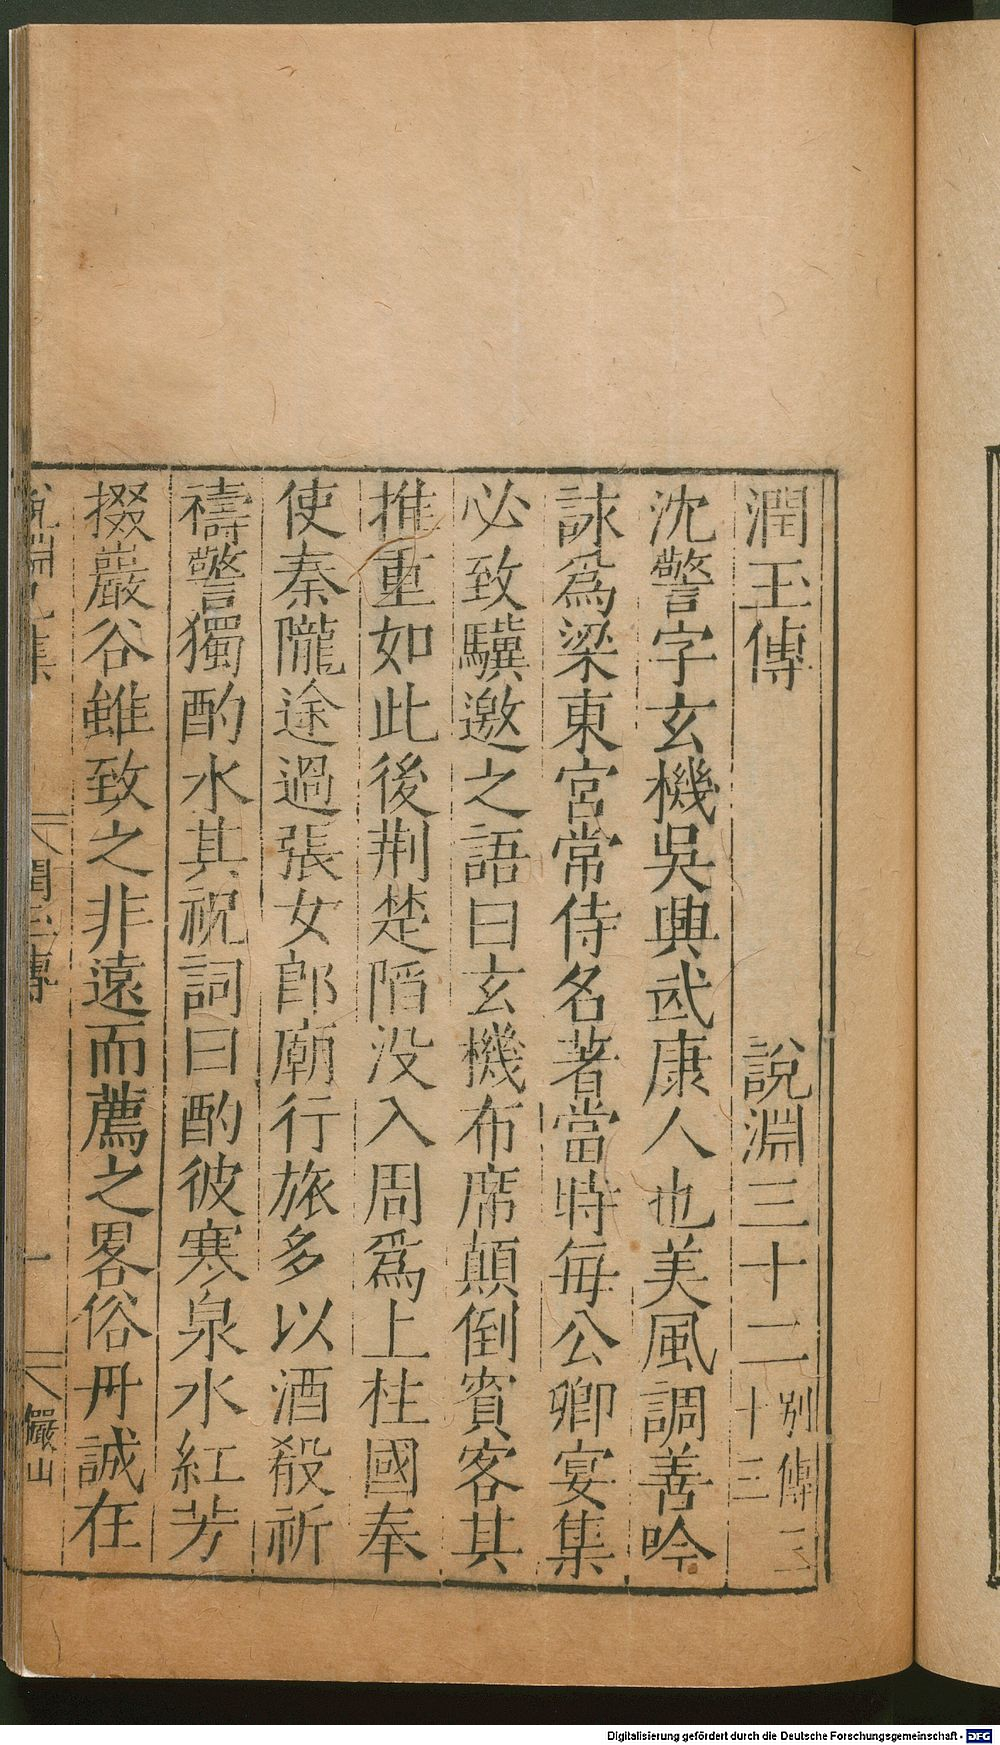 潤玉傳 說淵三十二 別傳三十三
沈警字玄機吳興武康人也美風調善吟
詠爲梁東宮常侍名著當時每公卿宴集
必致驥邀之語曰玄機布席顛倒賓客其
推重如此後荆楚陷没入周爲上柱國奉
使秦隴途過張女郎廟行旅多以酒殽祈
禱警獨酌水其祝詞曰酌彼寒泉水紅芳
掇巖谷雖致之非遠而薦之畧俗丹誠在
說淵 集 潤玉傳 一 儼山
Digitalisierung gefördert durch die Deutsche Forschungsgemeinschaft - DFG